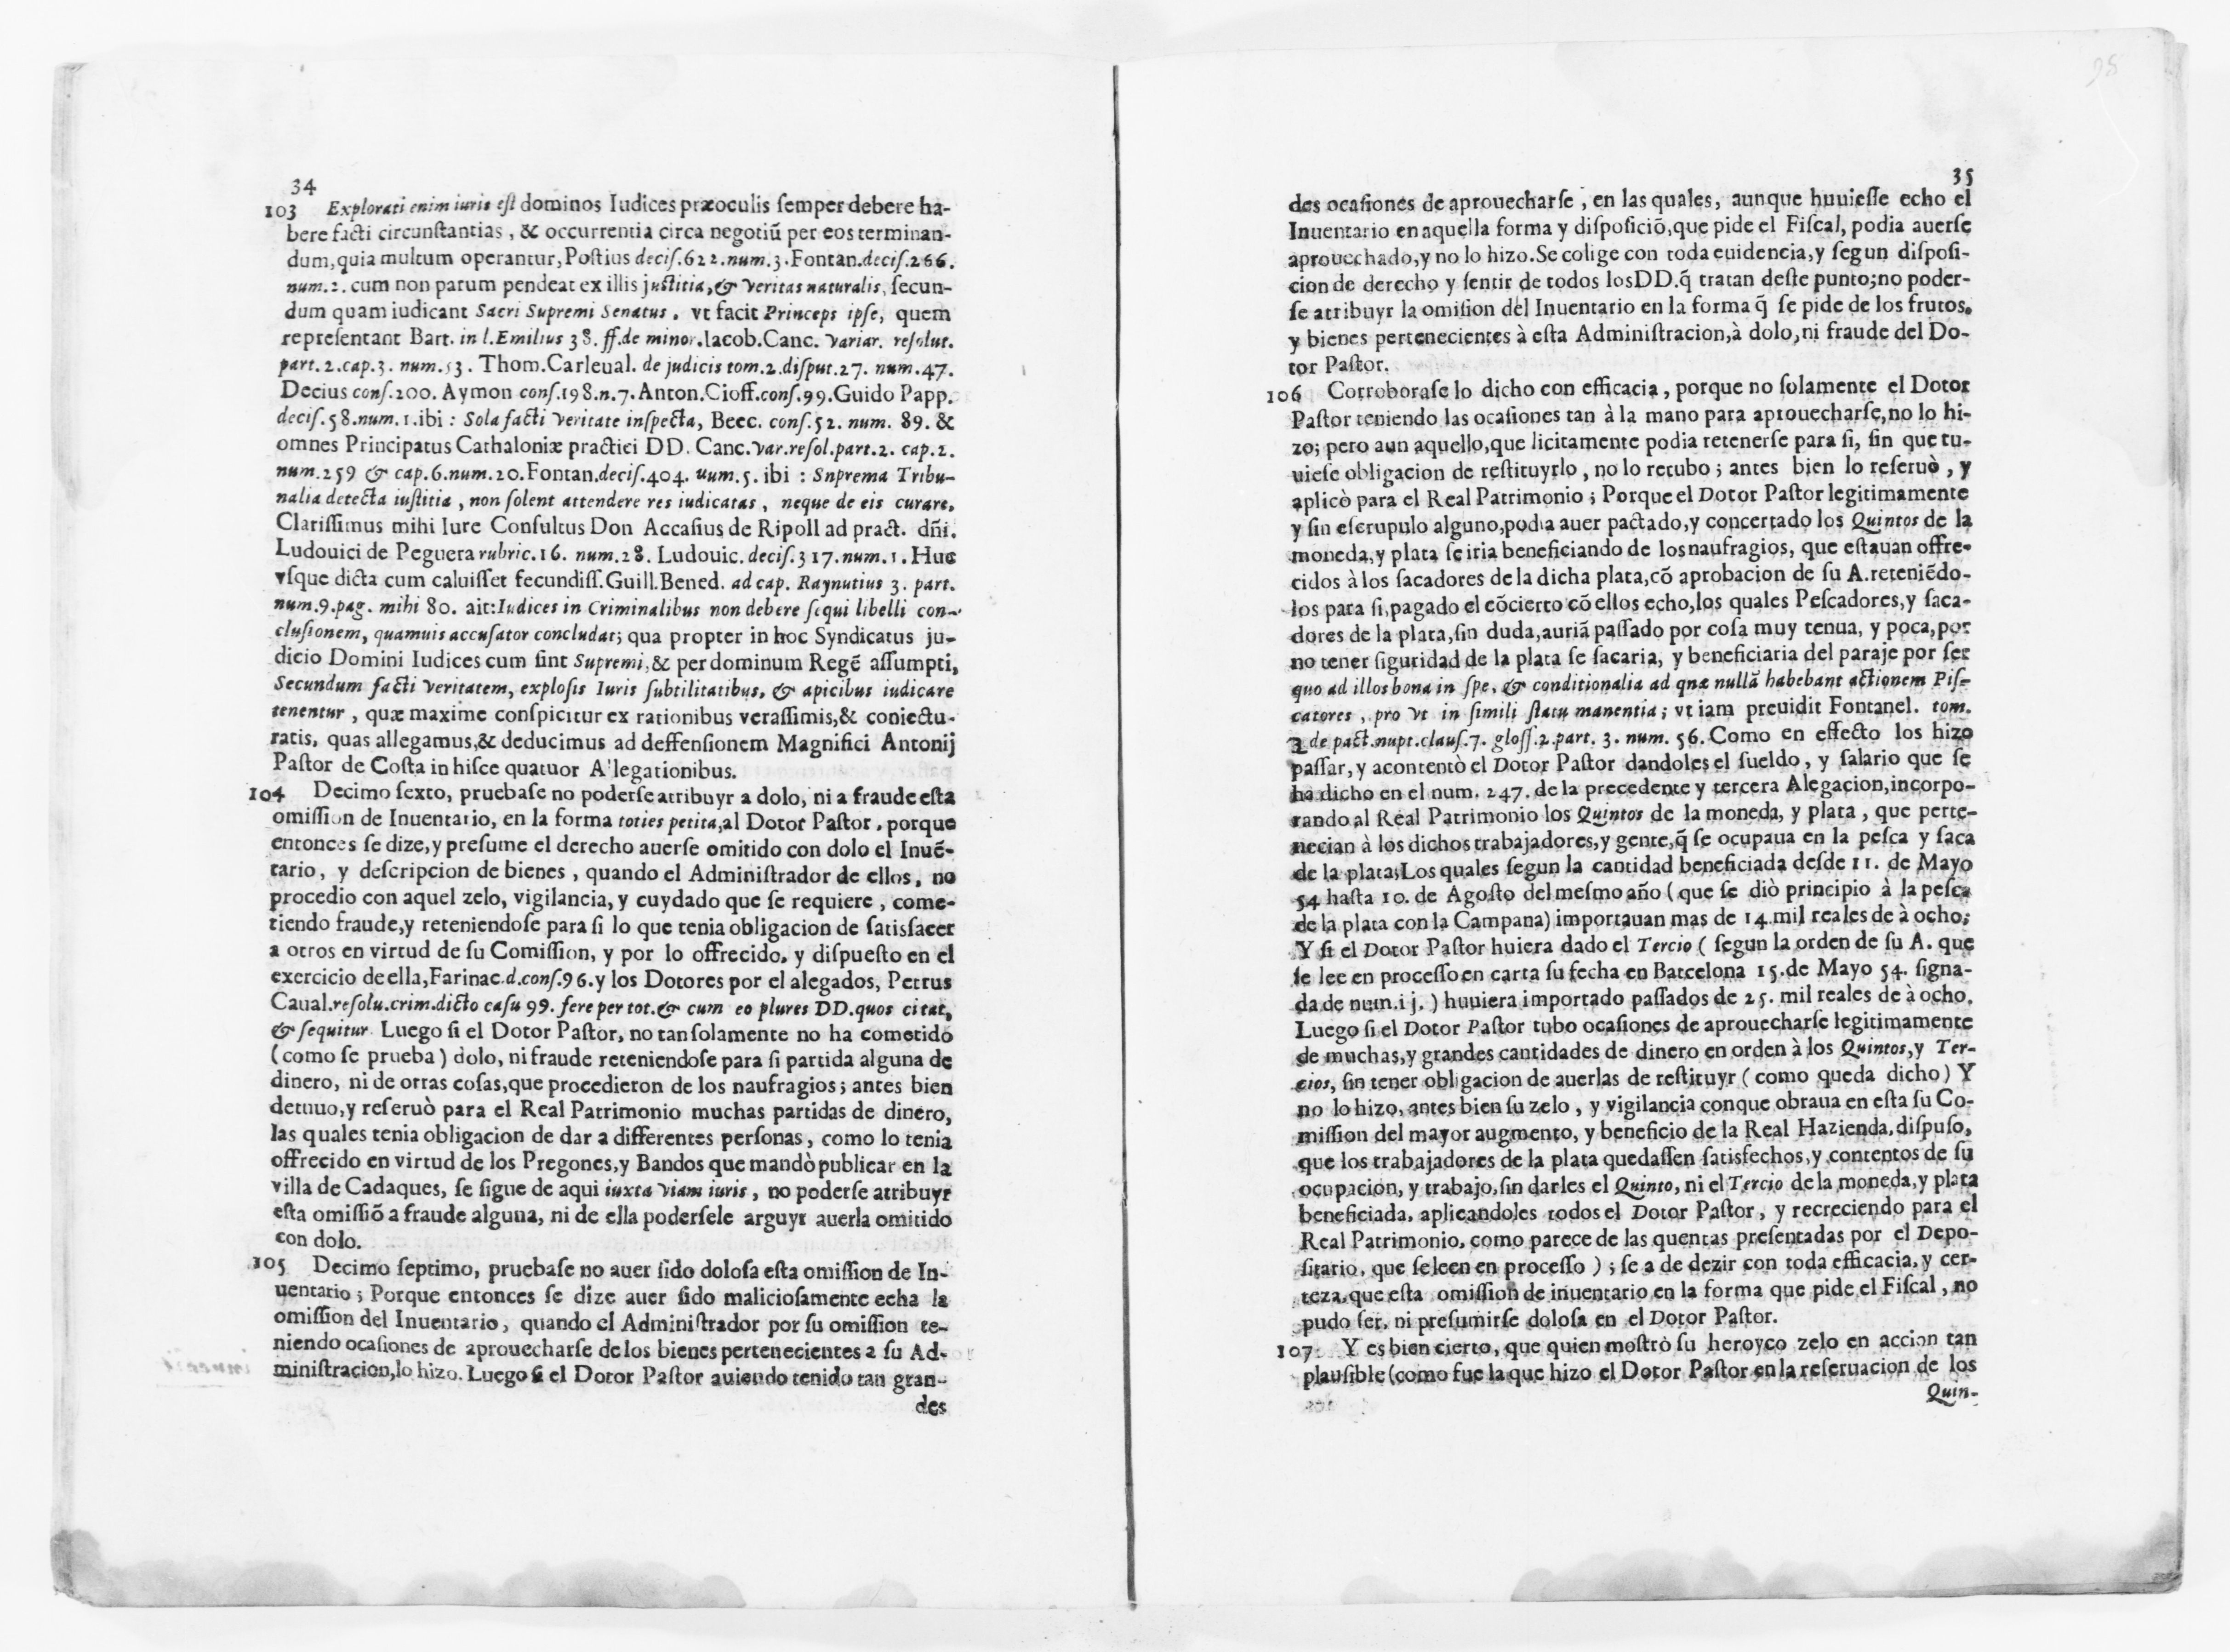 34
103 Explorati enim iuris eſt dominos Iudices præoculis ſemper debere ha-
bere facti circunſtantias, & occurrentia circa negotiũ per eos terminan-
dum, quia multum operantur, Poſtius deciſ. 622. num. 3. Fontan. deciſ. 266.
num. 2. cum non parum pendeat ex illis juſtitia, & veritas naturalis, ſecun-
dum quam iudicant Sacri Supremi Senatus. vt facit Princeps ipſe, quem
repreſentant Bart. in l. Emilius 38. ff. de minor. Iacob. Canc. variar. reſolut.
part. 2. cap. 3. num. 53. Thom. Carleual. de judicis tom. 2. diſput. 27. num. 47.
Decius conſ. 200. Aymon conſ. 198. n. 7. Anton. Cioff. conſ. 99. Guido Papp.
deciſ. 58. num. 1. ibi: Sola facti veritate inſpecta, Becc. conſ. 52. num. 89. &
omnes Principatus Cathaloniæ practici DD. Canc. var. reſol. part. 2. cap. 2.
num. 259 & cap. 6. num. 20. Fontan. deciſ. 404. uum. 5. ibi: Snprema Tribu-
nalia detecta iuſtitia, non ſolent attendere res iudicatas, neque de eis curare.
Clariſſimus mihi Iure Conſultus Don Accaſius de Ripoll ad pract. dñi.
Ludouici de Peguera rubric. 16. num. 28. Ludouic. deciſ. 317. num. 1. Huc
vſque dicta cum caluiſſet fecundiſſ. Guill. Bened. ad cap. Raynutius 3. part.
num. 9. pag. mihi 80. ait: Iudices in Criminalibus non debere ſequi libelli con-
cluſionem, quamuis accuſator concludat; qua propter in hoc Syndicatus ju-
dicio Domini Iudices cum ſint Supremi, & per dominum Regẽ aſſumpti,
Secundum facti veritatem, exploſis Iuris ſubtilitatibus, & apicibus iudicare
tenentur, quæ maxime conſpicitur ex rationibus veraſſimis, & coniectu-
ratis, quas allegamus, & deducimus ad deffenſionem Magnifici Antonij
Paſtor de Coſta in hiſce quatuor A'legationibus.
104 Decimo ſexto, pruebaſe no poderſe atribuyr a dolo, ni a fraude eſta
omiſſion de Inuentario, en la forma toties petita, al Dotor Paſtor, porque
entonces ſe dize, y preſume el derecho auerſe omitido con dolo el Inuẽ-
tario, y deſcripcion de bienes, quando el Adminiſtrador de ellos, no
procedio con aquel zelo, vigilancia, y cuydado que ſe requiere, come-
tiendo fraude, y reteniendoſe para ſi lo que tenia obligacion de ſatisſacer
a otros en virtud de ſu Comiſſion, y por lo offrecido, y diſpueſto en el
exercicio de ella, Farinac. d. conſ. 96. y los Dotores por el alegados, Petrus
Caual. reſolu. crim. dicto caſu 99. fere per tot. & cum eo plures DD. quos citat,
& ſequitur. Luego ſi el Dotor Paſtor, no tan ſolamente no ha cometido
(como ſe prueba) dolo, ni fraude reteniendoſe para ſi partida alguna de
dinero, ni de otras coſas, que procedieron de los naufragios; antes bien
detuuo, y reſeruò para el Real Patrimonio muchas partidas de dinero,
las quales tenia obligacion de dar a differentes perſonas, como lo tenia
offrecido en virtud de los Pregones, y Bandos que mandò publicar en la
villa de Cadaques, ſe ſigue de aqui iuxta viam iuris, no poderſe atribuyr
eſta omiſſiõ a fraude alguna, ni de ella poderſele arguyr auerla omitido
con dolo.
105 Decimo ſeptimo, pruebaſe no auer ſido doloſa eſta omiſſion de In-
uentario; Porque entonces ſe dize auer ſido malicioſamente echa la
omiſſion del Inuentario, quando el Adminiſtrador por ſu omiſſion te-
niendo ocaſiones de aprouecharſe de los bienes pertenecientes a ſu Ad-
miniſtracion, lo hizo. Luego ſi el Dotor Paſtor auiendo tenido tan gran-
des
35
des ocaſiones de aprouecharſe, en las quales, aunque huuieſſe echo el
Inuentario en aquella forma y diſpoſiciõ, que pide el Fiſcal, podia auerſe
aprouechado, y no lo hizo. Se colige con toda euidencia, y ſegun diſpoſi-
cion de derecho y ſentir de todos los DD. q̃ tratan deſte punto; no poder-
ſe atribuyr la omiſion del Inuentario en la forma q̃ ſe pide de los frutos.
y bienes pertenecientes à eſta Adminiſtracion, à dolo, ni fraude del Do-
tor Paſtor.
106 Corroboraſe lo dicho con efficacia, porque no ſolamente el Dotor
Paſtor teniendo las ocaſiones tan à la mano para aprouecharſe, no lo hi-
zo; pero aun aquello, que licitamente podia retenerſe para ſi, ſin que tu-
uieſe obligacion de reſtituyrlo, no lo retubo; antes bien lo reſeruò, y
aplicò para el Real Patrimonio; Porque el Dotor Paſtor legitimamente
y ſin eſcrupulo alguno, podia auer pactado, y concertado los Quintos de la
moneda, y plata ſe iria beneficiando de los naufragios, que eſtauan offre-
cidos à los ſacadores de la dicha plata, cõ aprobacion de ſu A. reteniẽdo-
los para ſi, pagado el cõcierto cõ ellos echo, los quales Peſcadores, y ſaca-
dores de la plata, ſin duda, auriã paſſado por coſa muy tenua, y poca, por
no tener ſiguridad de la plata ſe ſacaria, y beneficiaria del paraje por ſer
quo ad illos bona in ſpe, & conditionalia ad qnæ nullã habebant actionem Piſ-
catores, pro vt in ſimili ſtatu manentia; vt iam preuidit Fontanel. tom.
2 de pact. nupt. clauſ. 7. gloſſ. 2. part. 3. num. 56. Como en effecto los hizo
paſſar, y acontentò el Dotor Paſtor dandoles el ſueldo, y ſalario que ſe
ha dicho en el num. 247. de la precedente y tercera Alegacion, incorpo-
rando al Real Patrimonio los Quintos de la moneda, y plata, que perte-
necian à los dichos trabajadores, y gente, q̃ ſe ocupaua en la peſca y ſaca
de la plata; Los quales ſegun la cantidad beneficiada deſde 11. de Mayo
54 haſta 10. de Agoſto del meſmo año (que ſe diò principio à la peſca
de la plata con la Campana) importauan mas de 14. mil reales de à ocho;
Y ſi el Dotor Paſtor huiera dado el Tercio (ſegun la orden de ſu A. que
ſe lee en proceſſo en carta ſu fecha en Barcelona 15. de Mayo 54. ſigna-
da de num. ij.) huuiera importado paſſados de 25. mil reales de à ocho.
Luego ſi el Dotor Paſtor tubo ocaſiones de aprouecharſe legitimamente
de muchas, y grandes cantidades de dinero en orden à los Quintos, y Ter-
cios, ſin tener obligacion de auerlas de reſtituyr (como queda dicho) Y
no lo hizo, antes bien ſu zelo, y vigilancia con que obraua en eſta ſu Co-
miſſion del mayor augmento, y beneficio de la Real Hazienda, diſpuſo,
que los trabajadores de la plata quedaſſen ſatisfechos, y contentos de ſu
ocupacion, y trabajo, ſin darles el Quinto, ni el Tercio de la moneda, y plata
beneficiada, aplicandoles todos el Dotor Paſtor, y recreciendo para el
Real Patrimonio, como parece de las quentas preſentadas por el Depo-
ſitario, que ſe leen en proceſſo); ſe a de dezir con toda efficacia, y cer-
teza, que eſta omiſſion de inuentario en la forma que pide el Fiſcal, no
pudo ſer, ni preſumirſe doloſa en el Dotor Paſtor.
107 Y es bien cierto, que quien moſtrò ſu heroyco zelo en accion tan
plauſible (como fue la que hizo el Dotor Paſtor en la reſeruacion de los
Quin-